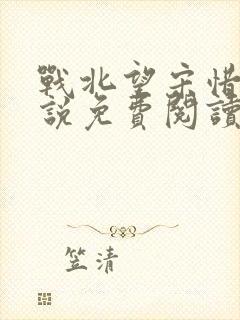 戰北望宋惜
說免費閱讀
笠清